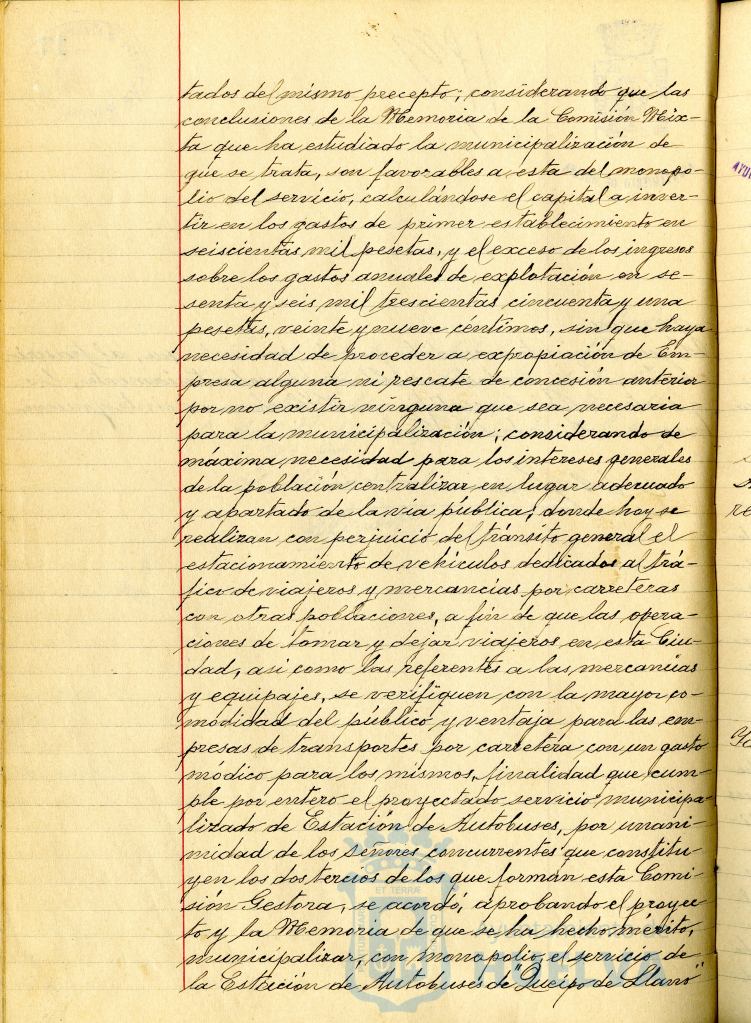 tados del mismo precepto; considerando que las
conclusiones de la Memoria de la Comisión Mix-
ta que ha estudiado la municipalización de
que se trata, son favorables a esta del monopo-
lio del servicio, calculándose el capital a inver-
tir en los gastos de primer establecimiento en
seiscientas mil pesetas, y el exceso de los ingresos
sobre los gastos anuales de explotación en se-
senta y seis mil trescientas cincuenta y una
pesetas, veinte y nueve céntimos, sin que haya
necesidad de proceder a expropiación de Em-
presa alguna ni rescate de concesión anterior
por no existir ninguna que sea necesaria
para la municipalización; considerando de
máxima necesidad para los intereses generales
de la población centralizar en lugar adecuado
y apartado de la via pública, donde hoy se
realizan con perjuicio del tránsito general el
estacionamiento de vehículos dedicados al trá-
fico de viajeros y mercancías por carreteras
con otras poblaciones, a fin de que las opera-
ciones de tomar y dejar viajeros en esta Ciu-
dad, asi como las referentes a las mercancias
y equipajes, se verifiquen con la mayor co-
modidad del público y ventaja para las em-
presas de transportes por carretera con un gasto
módico para los mismos, finalidad que cum-
ple por entero el proyectado servicio municipa-
lizado de Estación de Autobuses, por unani-
midad de los señores concurrentes que constitu-
yen los dos tercios de los que forman esta Comi-
sión Gestora, se acordó, aprobando el proyec-
to y la Memoria de que se ha hecho mérito,
municipalizar, con monopolio, el servicio de
la Estación de Autobuses de "Queipo de Llano"
ET TERRÆ